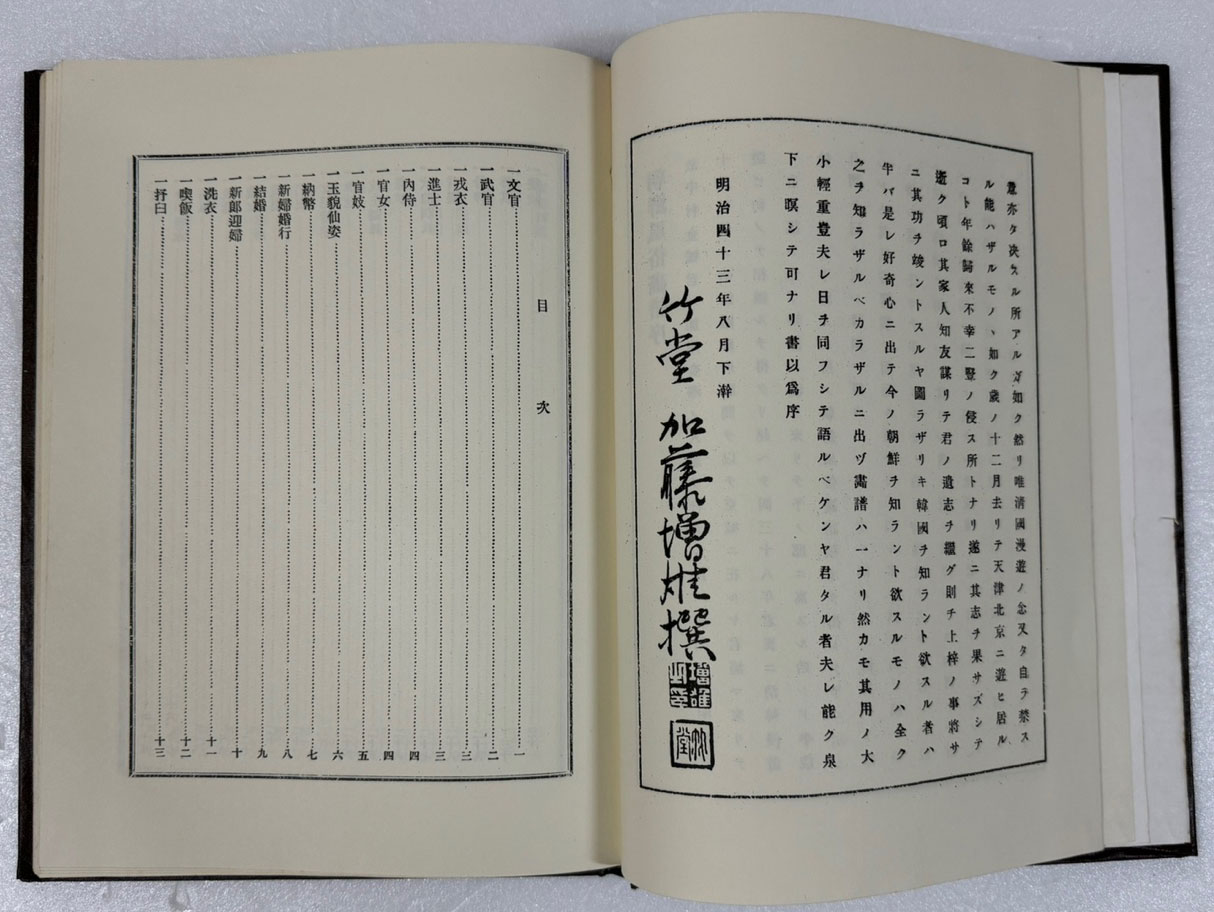 意亦タ决スル所アルガ如ク然リ唯清國漫遊ノ念又タ自ラ禁ス
ル能ハザルモノヽ如ク歳ノ十二月去リテ天津北京ニ遊ヒ居ル
コト年餘歸來不幸二豎ノ侵ス所トナリ遂ニ其志ヲ果サズシテ
逝ク頃ロ其家人知友謀リテ君ノ遺志ヲ繼グ則チ上梓ノ事將サ
ニ其功ヲ竣ントスルヤ圖ラザリキ韓國ヲ知ラント欲スル者ハ
半バ是レ好奇心ニ出テ今ノ朝鮮ヲ知ラント欲スルモノハ全ク
之ヲ知ラザルベカラザルニ出ヅ畵譜ハ一ナリ然カモ其用ノ大
小輕重豈夫レ日ヲ同フシテ語ルベケンヤ君タル者夫レ能ク泉
下ニ瞑シテ可ナリ書以爲序
明治四十三年八月下澣
竹堂 加藤增雄撰
增雄之印
竹堂
目次
一文官………一
一武官………二
一戎衣………三
一進士………三
一內侍………四
一官女………四
一官妓………五
一玉貌仙姿………六
一納幣………七
一新婦婚行………八
一結婚………九
一新郎迎婦………十
一洗衣………十一
一喫飯………十二
一抒臼………十三